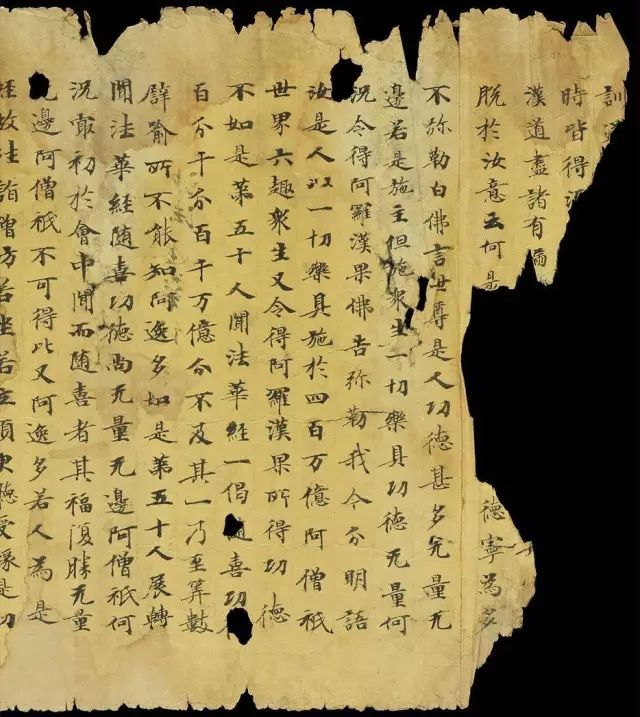 訓
時皆得
漢道盡諸有
脫於汝意云何是德寧為多
不弥勒白佛言世尊是人功德甚多无量无
邊若是施主但施衆生一切樂具功德无量何
況令得阿羅漢果佛告弥勒我今分明語
汝是人以一切樂具施於四百万億阿僧祇
世界六趣衆生又令得阿羅漢果所得功德
不如是第五十人聞法華經一偈喜功
百分千分百千万億分不及其一乃至筭數
譬喻所不能知阿逸多如是第五十人展轉
聞法華經隨喜功德尚无量无邊阿僧祇何
況最初於會中聞而隨喜者其福復勝无量
邊阿僧祇不可得比又阿逸多若人為是
經故往詣僧坊若坐若立須臾聽受緣是功